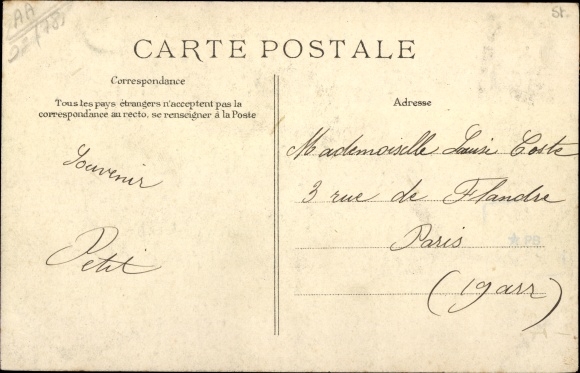 AA
St.
CARTE POSTALE
Correspondance
Tous les pays étrangers n'acceptent pas la
correspondance au recto, se renseigner à la Poste
Souvenir
Petit
Adresse
Mademoiselle Louise Coste
3 rue de Flandre
Paris
PB
(19 arr)